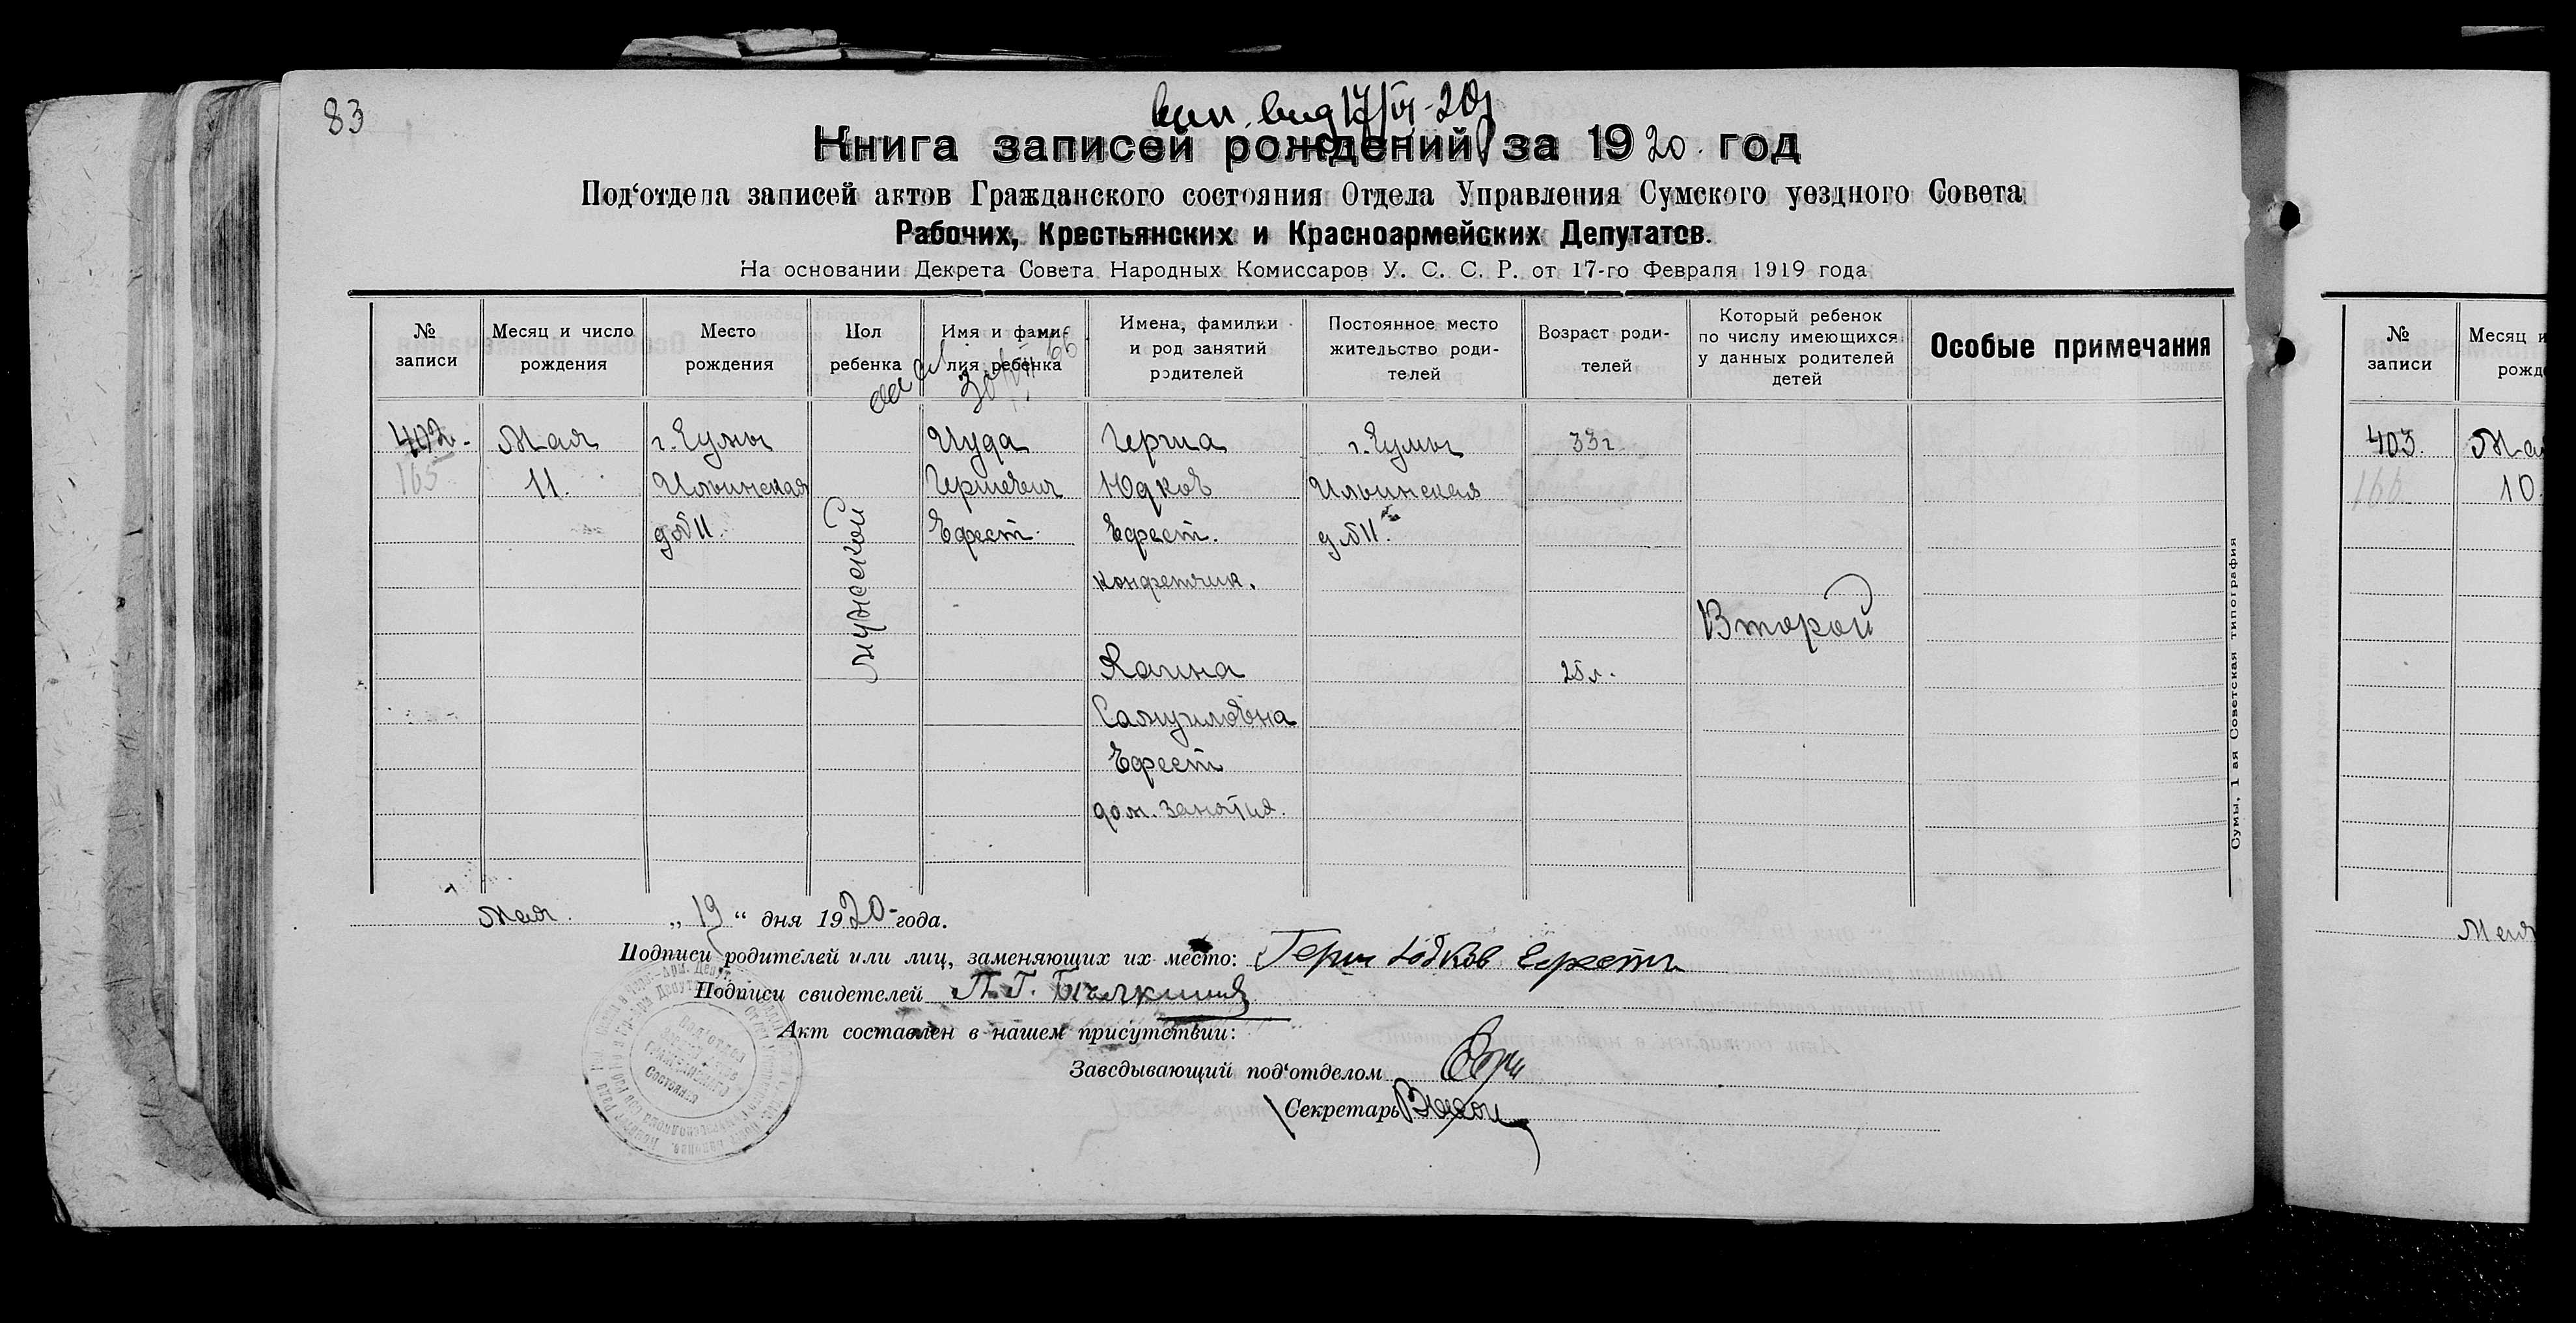 83
Книга записей рождений за 1920. год
Под'отдела записей актов Гражданского состояния Отдела Управления Сумского уездного Совета
Рабочих, Крестьянских и Красноармейских Депутатов.
На основании Декрета Совета Народных Комиссаров У. С. С. Р. от 17-го Февраля 1919 года
№ записи
Месяц и число рождения
Место рождения
Пол ребенка
Имя и фамилия ребенка
Имена, фамилии и род занятий родителей
Постоянное место жительство родителей
Возраст родителей
Который ребенок по числу имеющихся у данных родителей детей
Особые примечания
402.
165
Мая
11.
г. Сумы
Ильинская
д. № 11.
мужской
Иуда
Гершевич
Ефест.
Герша
Юдков
Ефест.
конфетчик.
Раина
Самуиловна
Ефест
дом. занятия.
г. Сумы
Ильинская
д. № 11.
33 г.
25 л.
Второй
Мая „19“ дня 1920 года.
Подписи родителей или лиц, заменяющих их место: Герш Юдков Ефест
Подписи свидетелей П. Г.
Акт составлен в нашем присутствии:
Заведывающий под'отделом
Секретарь
Сумы, 1 ая Советская типография
№ записи
Месяц и
рожд
403.
166
Ма
10.
Мая